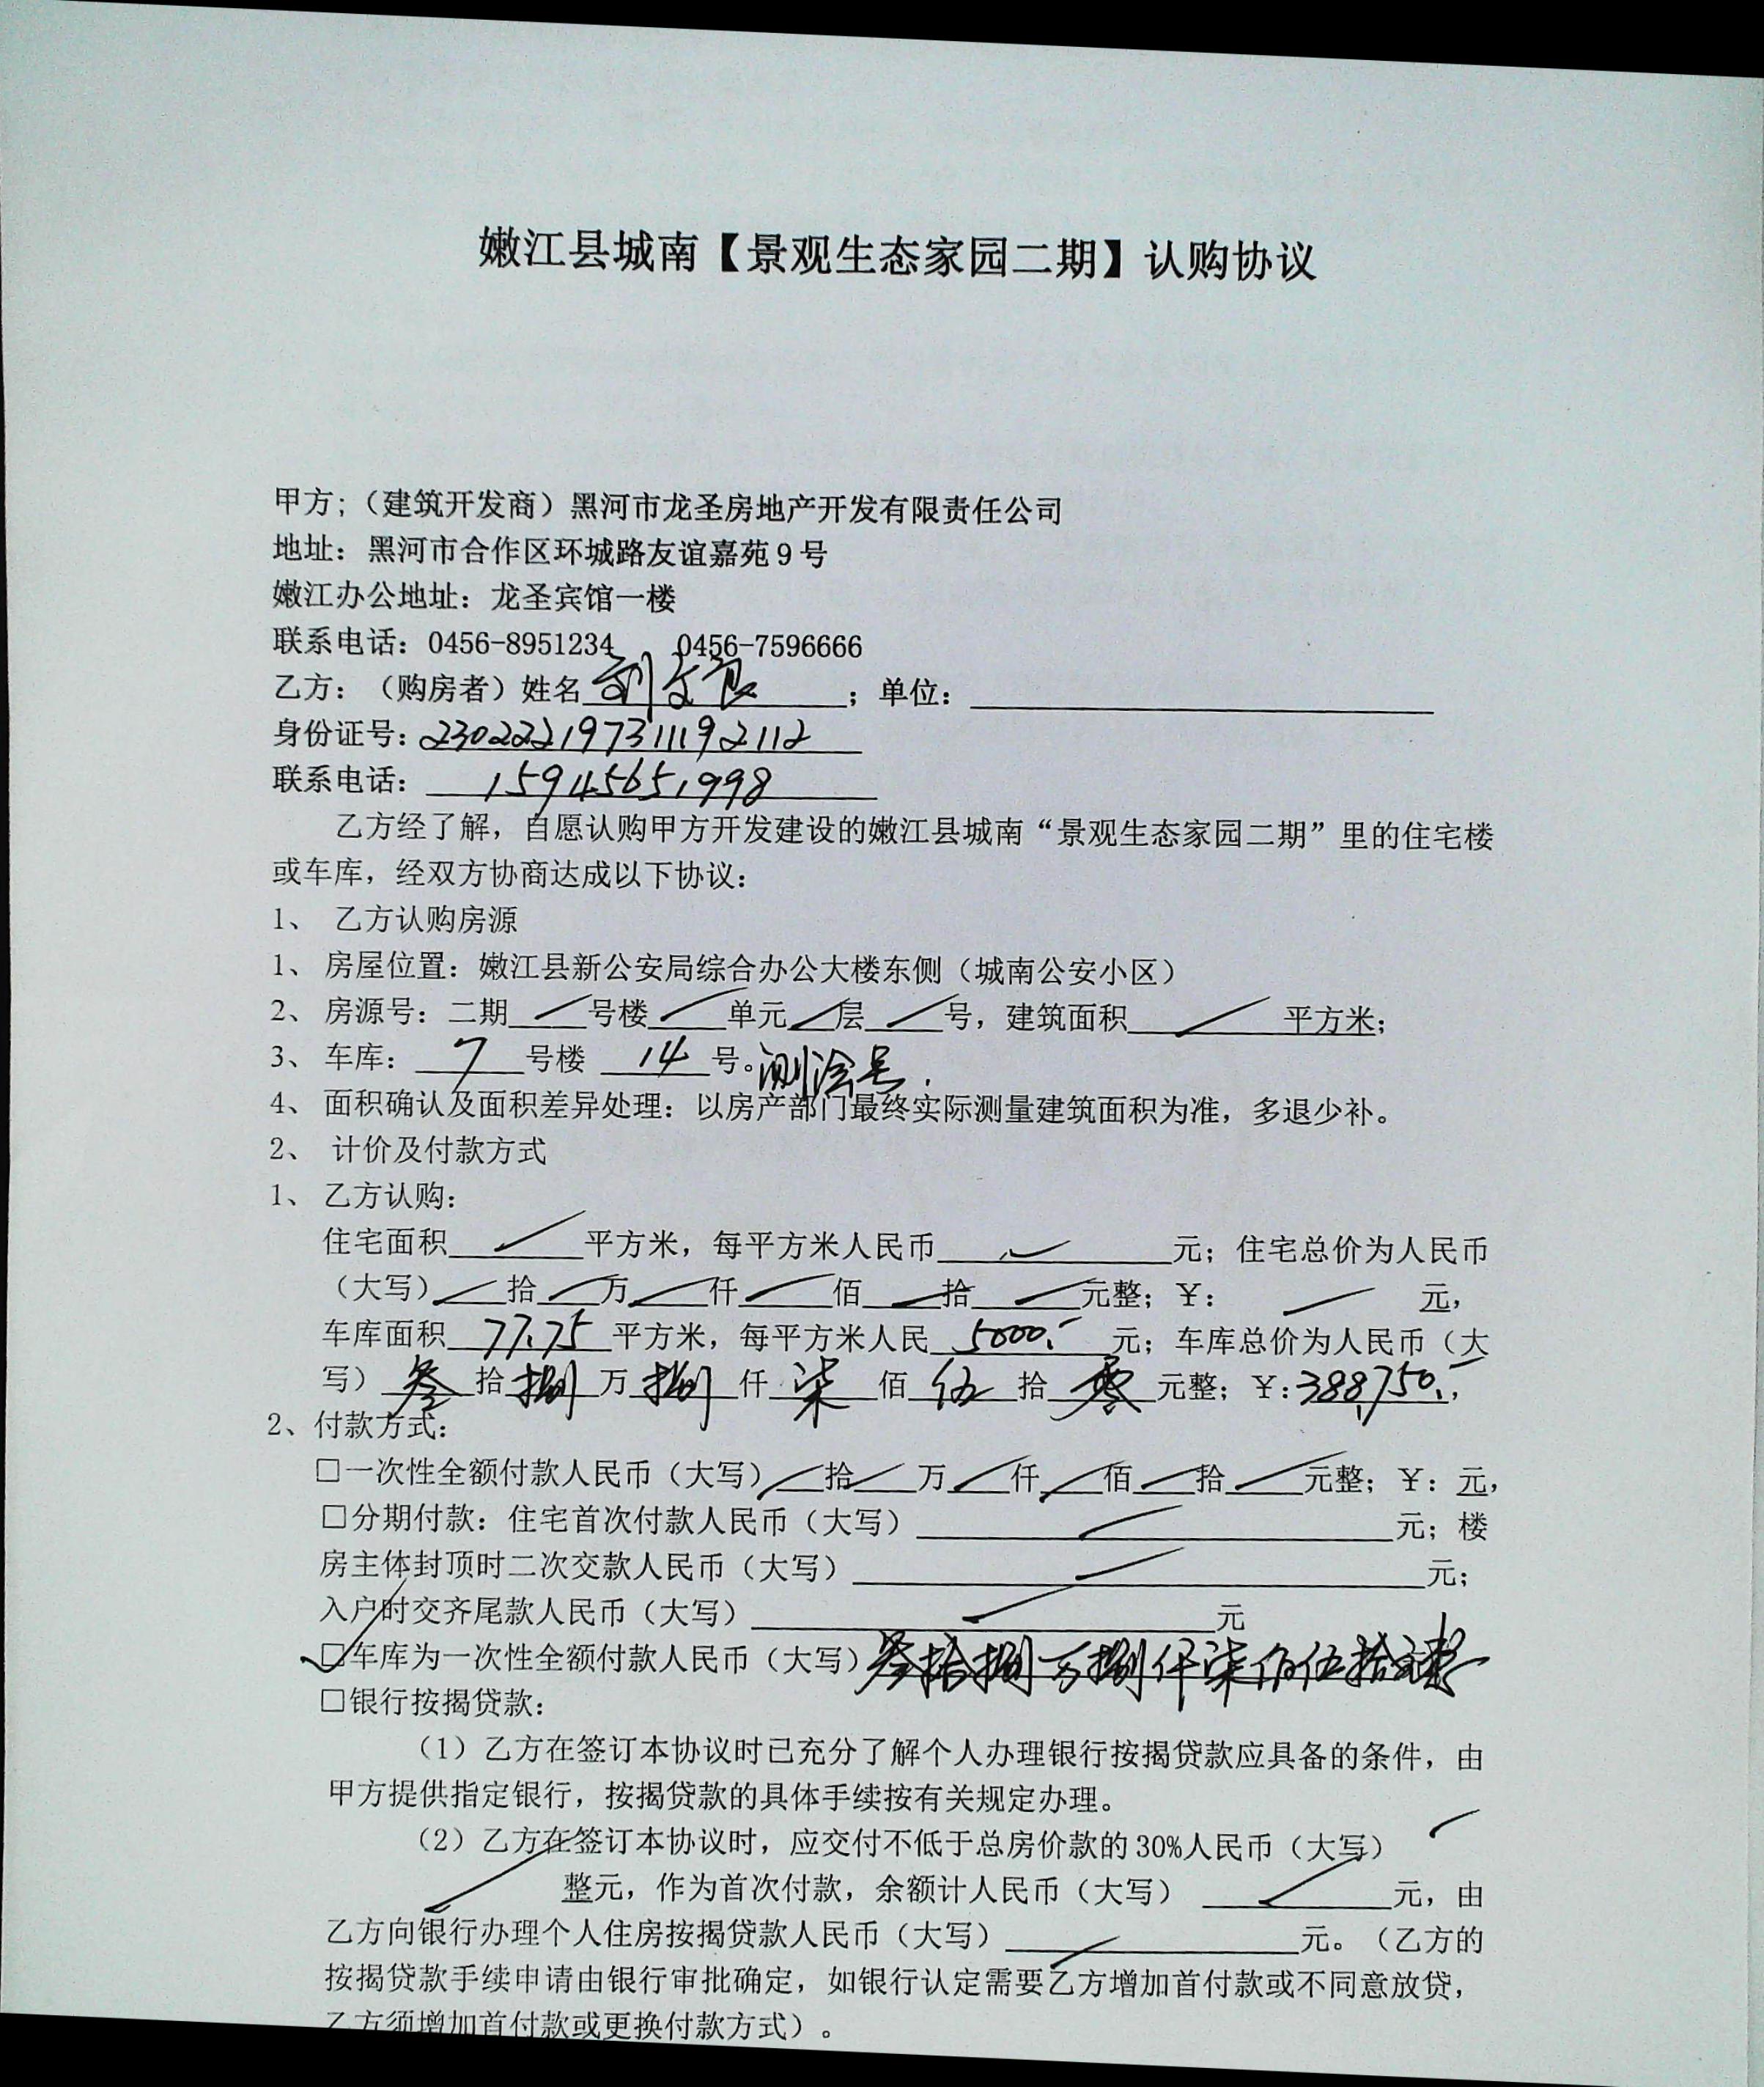 嫩江县城南【景观生态家园二期】认购协议
甲方;（建筑开发商）黑河市龙圣房地产开发有限责任公司
地址：黑河市合作区环城路友谊嘉苑9号
嫩江办公地址：龙圣宾馆一楼
联系电话：0456-8951234 0456-7596666
乙方：（购房者）姓名 刘文良 ；单位：
身份证号：230222197311192112
联系电话：15945651998
乙方经了解，自愿认购甲方开发建设的嫩江县城南“景观生态家园二期”里的住宅楼
或车库，经双方协商达成以下协议：
1、 乙方认购房源
1、房屋位置：嫩江县新公安局综合办公大楼东侧（城南公安小区）
2、房源号：二期 / 号楼 / 单元 / 层 / 号，建筑面积 / 平方米；
3、车库： 7 号楼 14 号。测绘号.
4、面积确认及面积差异处理：以房产部门最终实际测量建筑面积为准，多退少补。
2、 计价及付款方式
1、乙方认购：
住宅面积 / 平方米，每平方米人民币 / 元；住宅总价为人民币
（大写） / 拾 / 万 / 仟 / 佰 / 拾 / 元整；￥： / 元，
车库面积 77.75 平方米，每平方米人民 5000.- 元；车库总价为人民币（大
写） 叁 拾 捌 万 捌 仟 柒 佰 伍 拾 零 元整；￥:388,750.-，
2、付款方式：
□一次性全额付款人民币（大写） / 拾 / 万 / 仟 / 佰 / 拾 / 元整；￥：元，
□分期付款：住宅首次付款人民币（大写） / 元；楼
房主体封顶时二次交款人民币（大写） / 元；
入户时交齐尾款人民币（大写） / 元
☑车库为一次性全额付款人民币（大写）叁拾捌万捌仟柒佰伍拾元整
□银行按揭贷款：
（1）乙方在签订本协议时已充分了解个人办理银行按揭贷款应具备的条件，由
甲方提供指定银行，按揭贷款的具体手续按有关规定办理。
（2）乙方在签订本协议时，应交付不低于总房价款的30%人民币（大写） /
/ 整元，作为首次付款，余额计人民币（大写） / 元，由
乙方向银行办理个人住房按揭贷款人民币（大写） / 元。（乙方的
按揭贷款手续申请由银行审批确定，如银行认定需要乙方增加首付款或不同意放贷，
乙方须增加首付款或更换付款方式）。